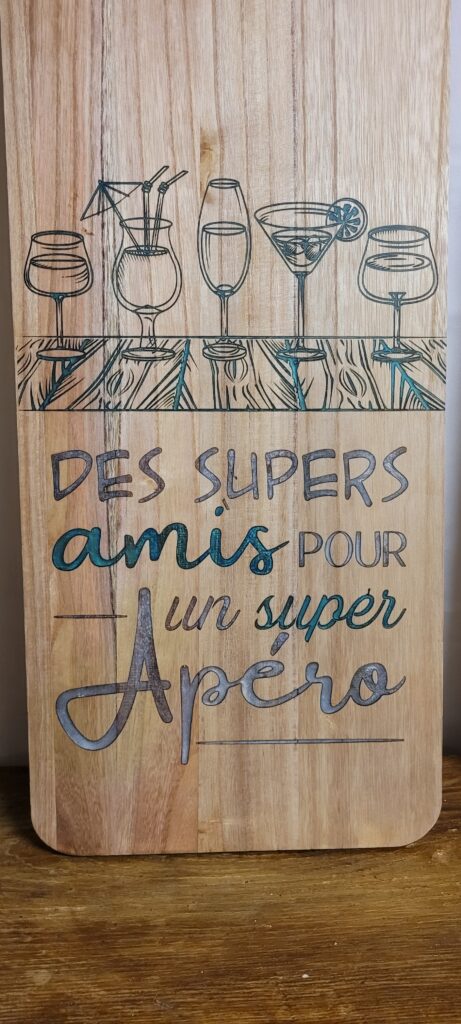 DES SUPERS
amis POUR
un super
Apéro